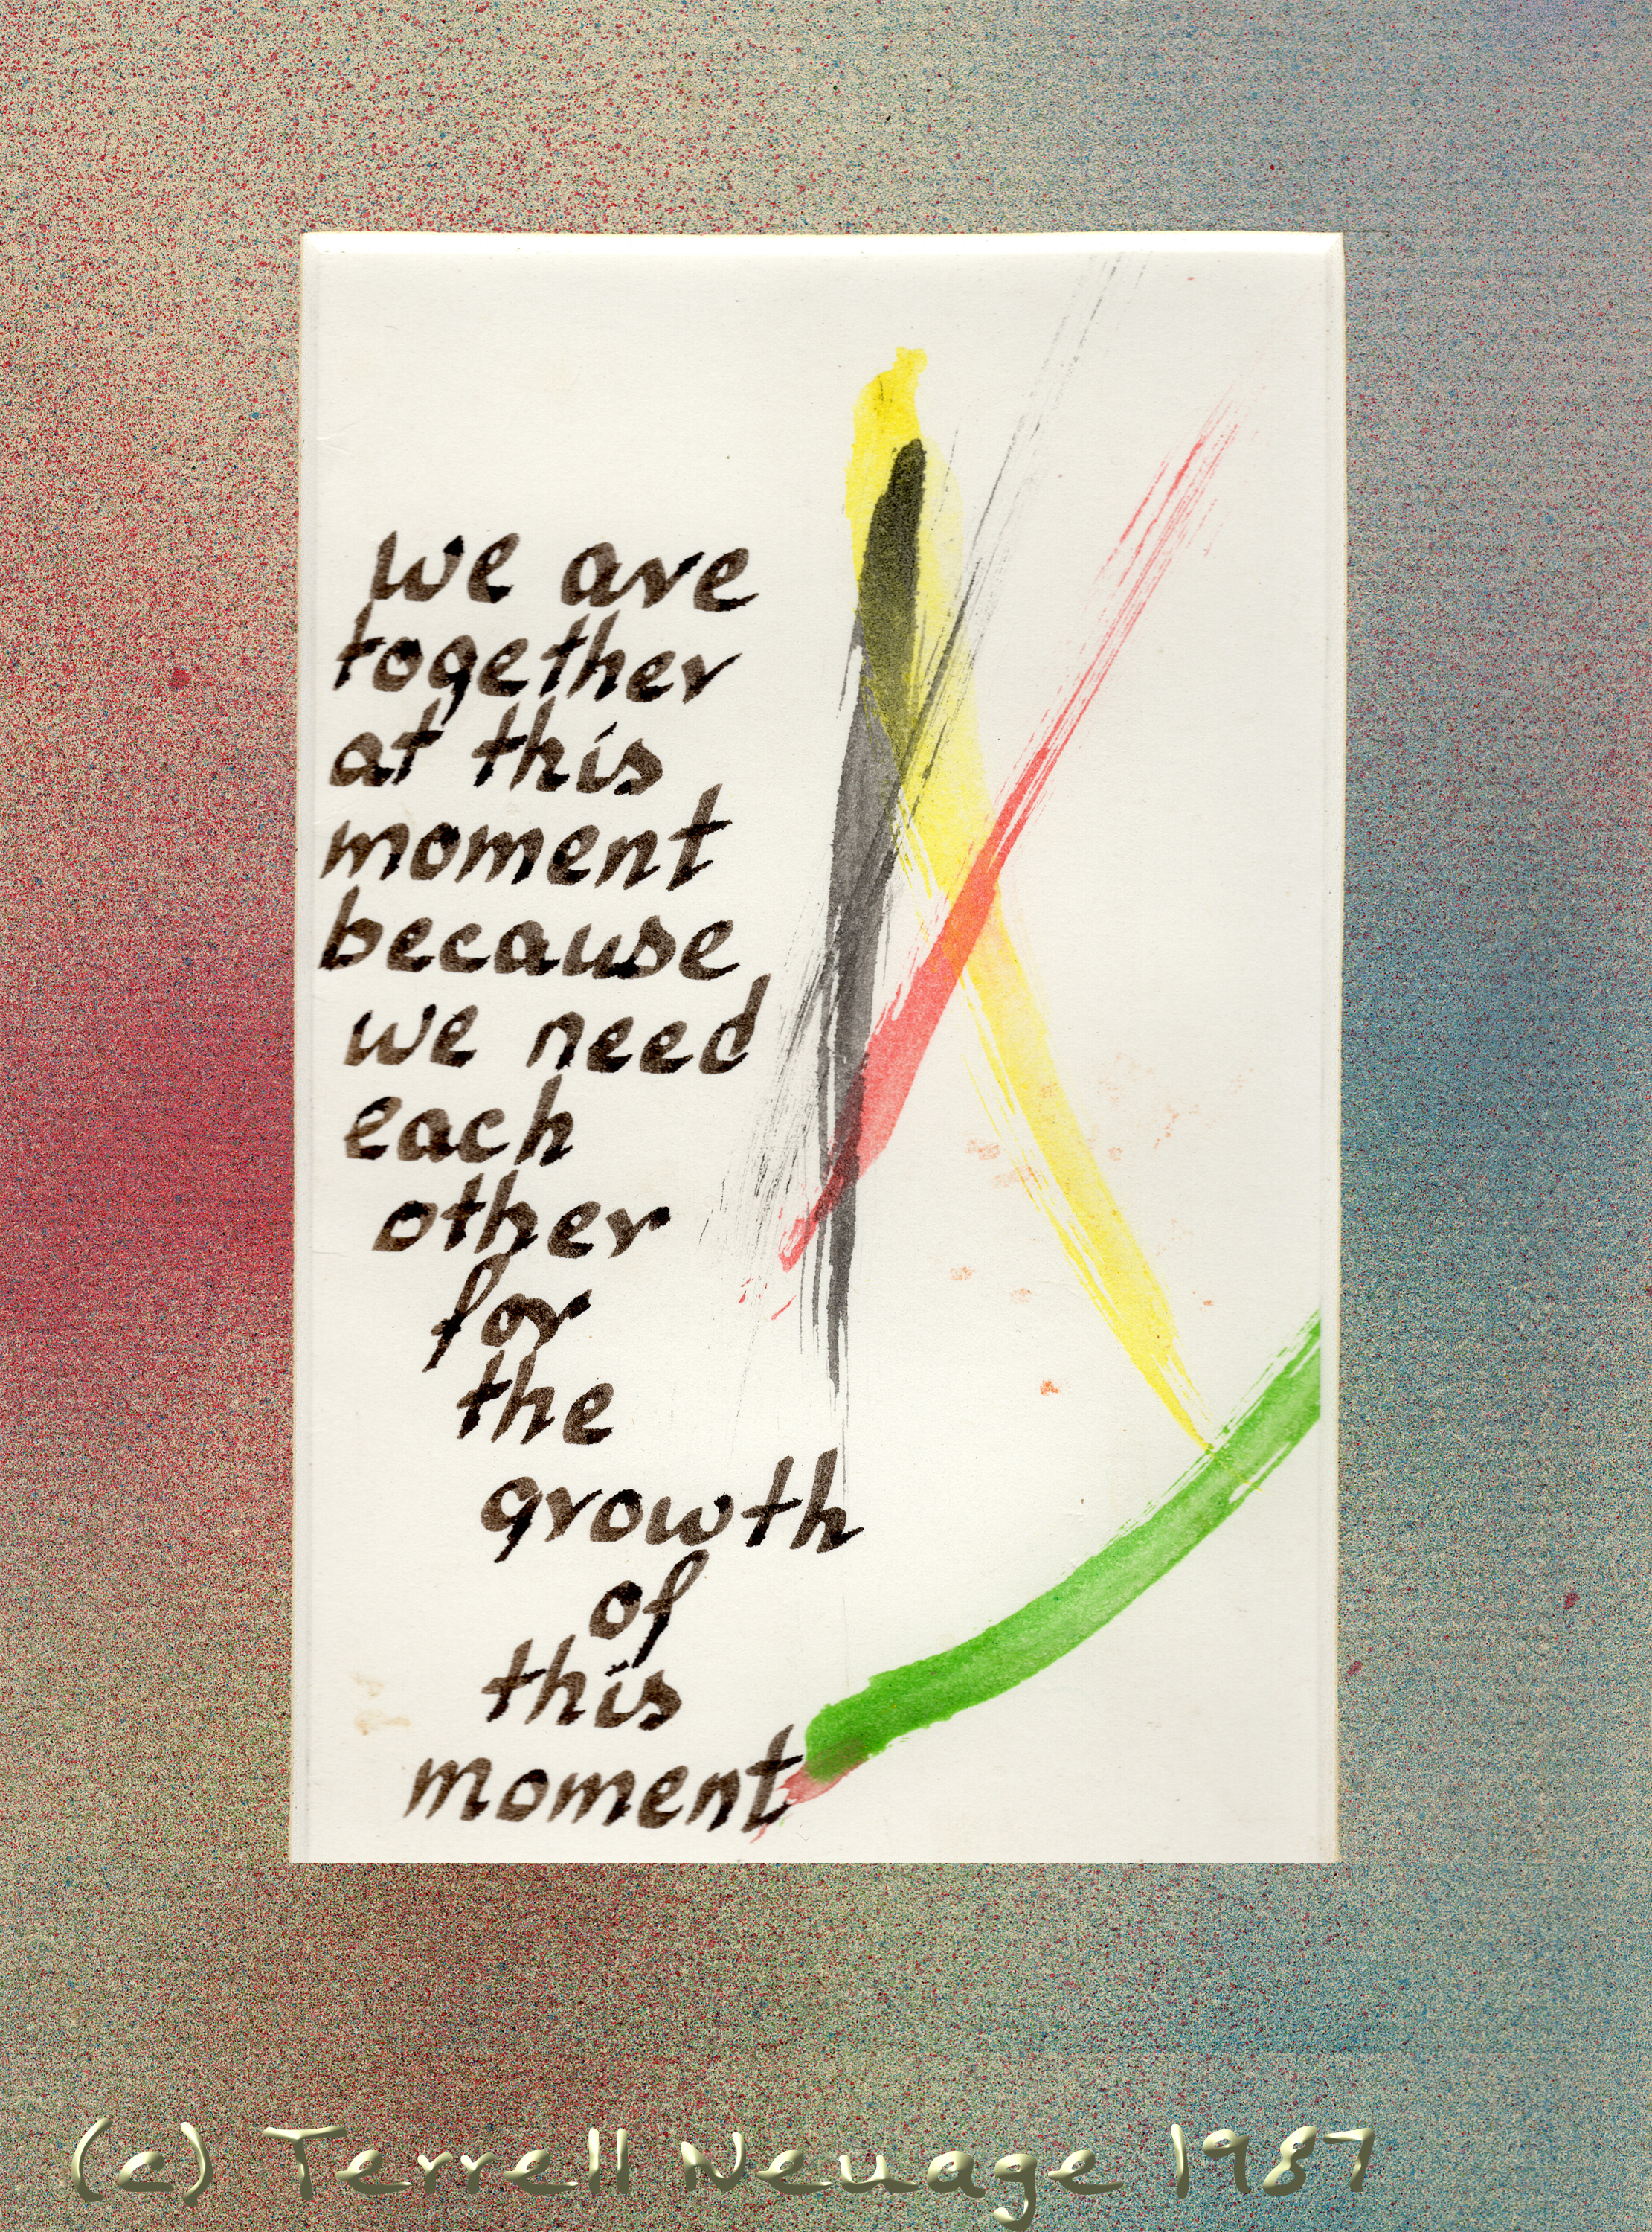 we are
together
at this
moment
because
we need
each
other
for
the
growth
of
this
moment
(c) Terrell Neuage 1987